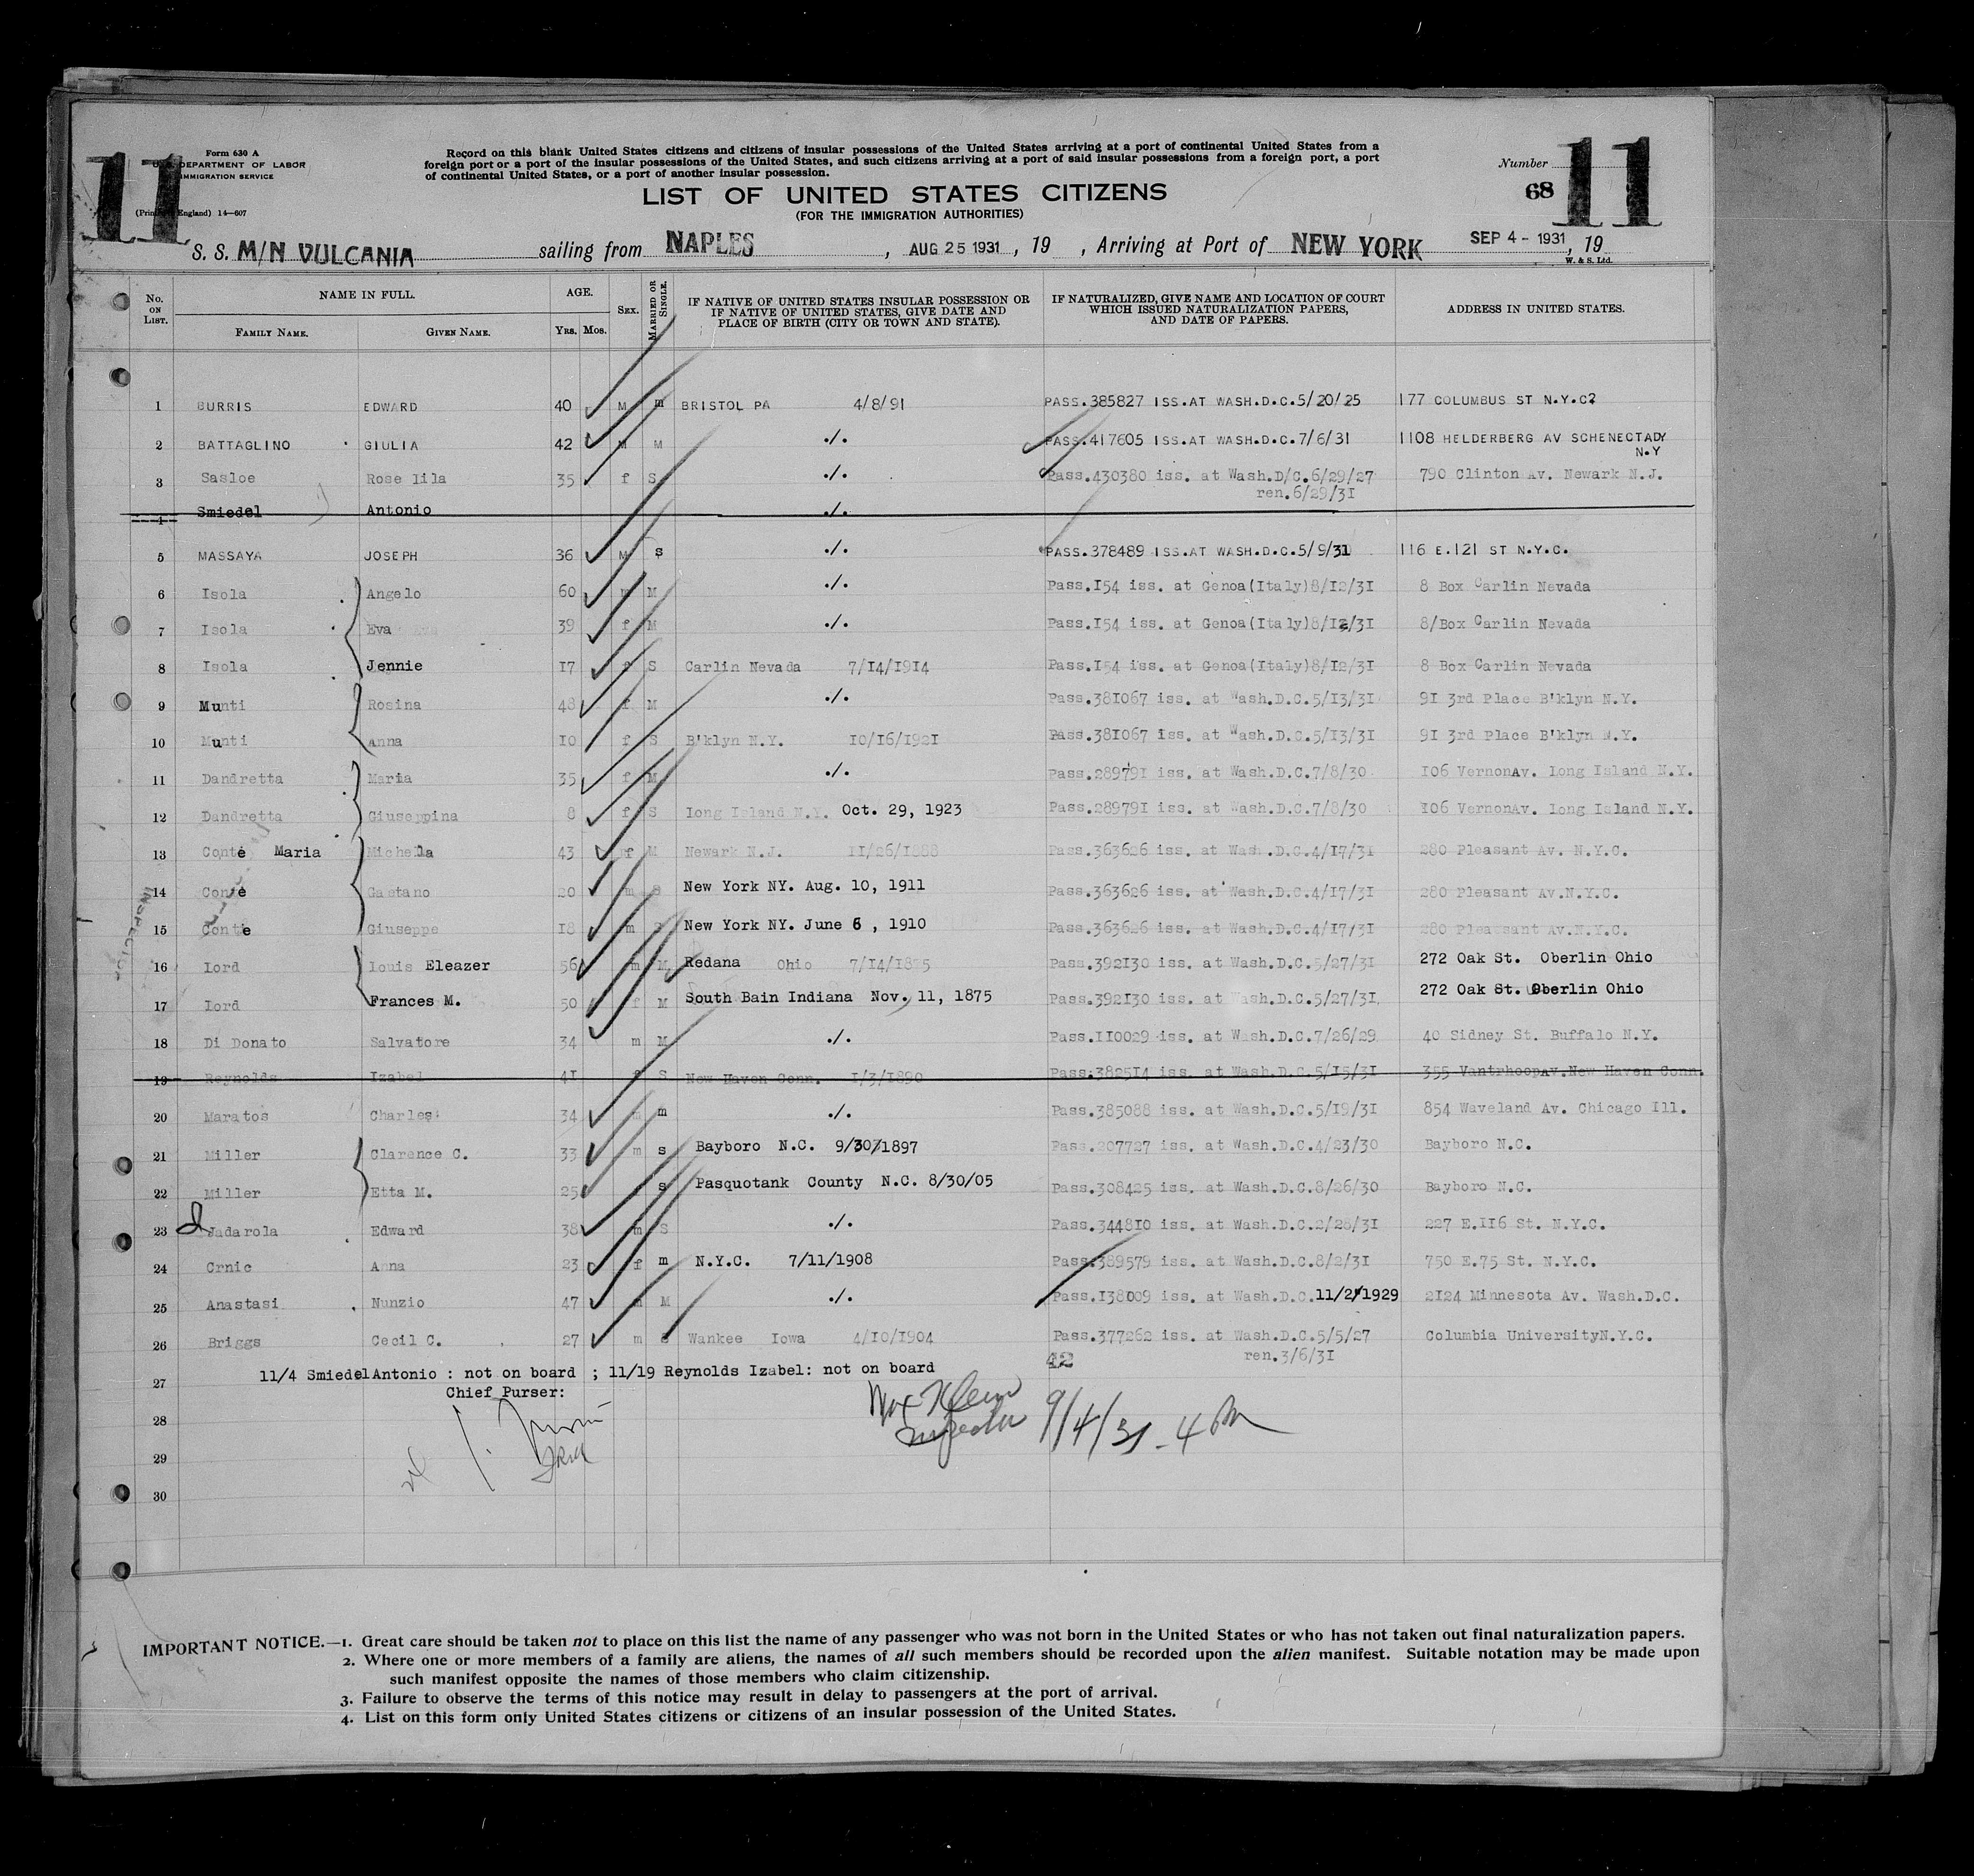 11
Form 630 A
U.S. DEPARTMENT OF LABOR
IMMIGRATION SERVICE
(Printed in England) 14—607
Record on this blank United States citizens and citizens of insular possessions of the United States arriving at a port of continental United States from a
foreign port or a port of the insular possessions of the United States, and such citizens arriving at a port of said insular possessions from a foreign port, a port
of continental United States, or a port of another insular possession.
Number 11
68
LIST OF UNITED STATES CITIZENS
(FOR THE IMMIGRATION AUTHORITIES)
S. S. M/N VULCANIA sailing from NAPLES, AUG 25 1931, 19 , Arriving at Port of NEW YORK SEP 4 - 1931, 19
W. & S. Ltd.
No. ON LIST. NAME IN FULL. AGE. SEX. MARRIED OR SINGLE. IF NATIVE OF UNITED STATES INSULAR POSSESSION OR IF NATIVE OF UNITED STATES, GIVE DATE AND PLACE OF BIRTH (CITY OR TOWN AND STATE). IF NATURALIZED, GIVE NAME AND LOCATION OF COURT WHICH ISSUED NATURALIZATION PAPERS, AND DATE OF PAPERS. ADDRESS IN UNITED STATES.
FAMILY NAME. GIVEN NAME. YRS. MOS.
1 BURRIS EDWARD 40 M m BRISTOL PA 4/8/91 PASS.385827 ISS.AT WASH.D.C.5/20/25 177 COLUMBUS ST N.Y.C?
2 BATTAGLINO GIULIA 42 M M ./. PASS.417605 ISS.AT WASH.D.C.7/6/31 1108 HELDERBERG AV SCHENECTADY
N.Y
3 Sasloe Rose lila 35 f S ./. Pass.430380 iss. at Wash.D/C.6/29/27 790 Clinton Av. Newark N.J.
ren.6/29/31
4 Smiedel Antonio ./.
5 MASSAYA JOSEPH 36 M s ./. PASS.378489 ISS.AT WASH.D.C.5/9/31 116 E.121 ST N.Y.C.
6 Isola Angelo 60 m M ./. Pass.154 iss. at Genoa(Italy)8/12/31 8 Box Carlin Nevada
7 Isola Eva 39 f M ./. Pass.154 iss. at Genoa(Italy)8/12/31 8/Box Carlin Nevada
8 Isola Jennie 17 f S Carlin Nevada 7/14/1914 Pass.154 iss. at Genoa(Italy)8/12/31 8 Box Carlin Nevada
9 Munti Rosina 48 f M ./. Pass.381067 iss. at Wash.D.C.5/13/31 91 3rd Place B'klyn N.Y.
10 Munti Anna 10 f S B'klyn N.Y. 10/16/1921 Pass.381067 iss. at Wash.D.C.5/13/31 91 3rd Place B'klyn N.Y.
11 Dandretta Maria 35 f M ./. Pass.289791 iss. at Wash.D.C.7/8/30 106 VernonAv. long Island N.Y.
12 Dandretta Giuseppina 8 f S Iong Island N.Y. Oct. 29, 1923 Pass.289791 iss. at Wash.D.C.7/8/30 106 VernonAv. long Island N.Y.
13 Conte Maria Michela 43 f M Newark N.J. 11/26/1888 Pass.363626 iss. at Wash.D.C.4/17/31 280 Pleasant Av. N.Y.C.
14 Conte Gaetano 20 m S New York NY. Aug. 10, 1911 Pass.363626 iss. at Wash.D.C.4/17/31 280 Pleasant Av.N.Y.C.
15 Conte Giuseppe 18 m New York NY. June 6 , 1910 Pass.363626 iss. at Wash.D.C.4/17/31 280 Pleasant Av.N.Y.C.
INSPECTOR
16 Lord Louis Eleazer 56 m M Redana Ohio 7/14/1875 Pass.392130 iss. at Wash.D.C.5/27/31 272 Oak St. Oberlin Ohio
17 Lord Frances M. 50 f M South Bain Indiana Nov. 11, 1875 Pass.392130 iss. at Wash.D.C.5/27/31 272 Oak St. Oberlin Ohio
18 Di Donato Salvatore 34 m M ./. Pass.110029 iss. at Wash.D.C.7/26/29 40 Sidney St. Buffalo N.Y.
19 Reynolds Izabel 41 f S New Haven Conn. 1/3/1890 Pass.382514 iss. at Wash.D.C.5/15/31 355 VantrhoopAv.New Haven Conn.
20 Maratos Charles 34 m m ./. Pass.385088 iss. at Wash.D.C.5/19/31 854 Waveland Av. Chicago Ill.
21 Miller Clarence C. 33 m s Bayboro N.C. 9/30/1897 Pass.207727 iss. at Wash.D.C.4/23/30 Bayboro N.C.
22 Miller Etta M. 25 f s Pasquotank County N.C. 8/30/05 Pass.308425 iss. at Wash.D.C.8/26/30 Bayboro N.C.
23 Jadarola Edward 38 m S ./. Pass.344810 iss. at Wash.D.C.2/28/31 227 E.116 St. N.Y.C.
24 Crnic Anna 23 f m N.Y.C. 7/11/1908 Pass.389579 iss. at Wash.D.C.8/2/31 750 E.75 St. N.Y.C.
25 Anastasi Nunzio 47 m M ./. Pass.138009 iss. at Wash.D.C.11/2/1929 2124 Minnesota Av. Wash.D.C.
26 Briggs Cecil C. 27 m S Wankee Iowa 4/10/1904 Pass.377262 iss. at Wash.D.C.5/5/27 Columbia UniversityN.Y.C.
42 ren.3/6/31
27 11/4 Smiedel Antonio : not on board ; 11/19 Reynolds Izabel: not on board
Chief Purser:
28 Inspector 9/4/31 - 4 PM
29
30
IMPORTANT NOTICE.—1. Great care should be taken not to place on this list the name of any passenger who was not born in the United States or who has not taken out final naturalization papers.
2. Where one or more members of a family are aliens, the names of all such members should be recorded upon the alien manifest. Suitable notation may be made upon
such manifest opposite the names of those members who claim citizenship.
3. Failure to observe the terms of this notice may result in delay to passengers at the port of arrival.
4. List on this form only United States citizens or citizens of an insular possession of the United States.